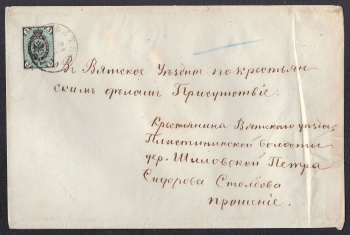 Въ Вятское Уѣздное по крестьян
скимъ дѣламъ Присутствіе.
Крестьянина Вятскаго уѣзда,
волости
дер. Шиловской Петра
Сидорова Столбова
прошеніе.